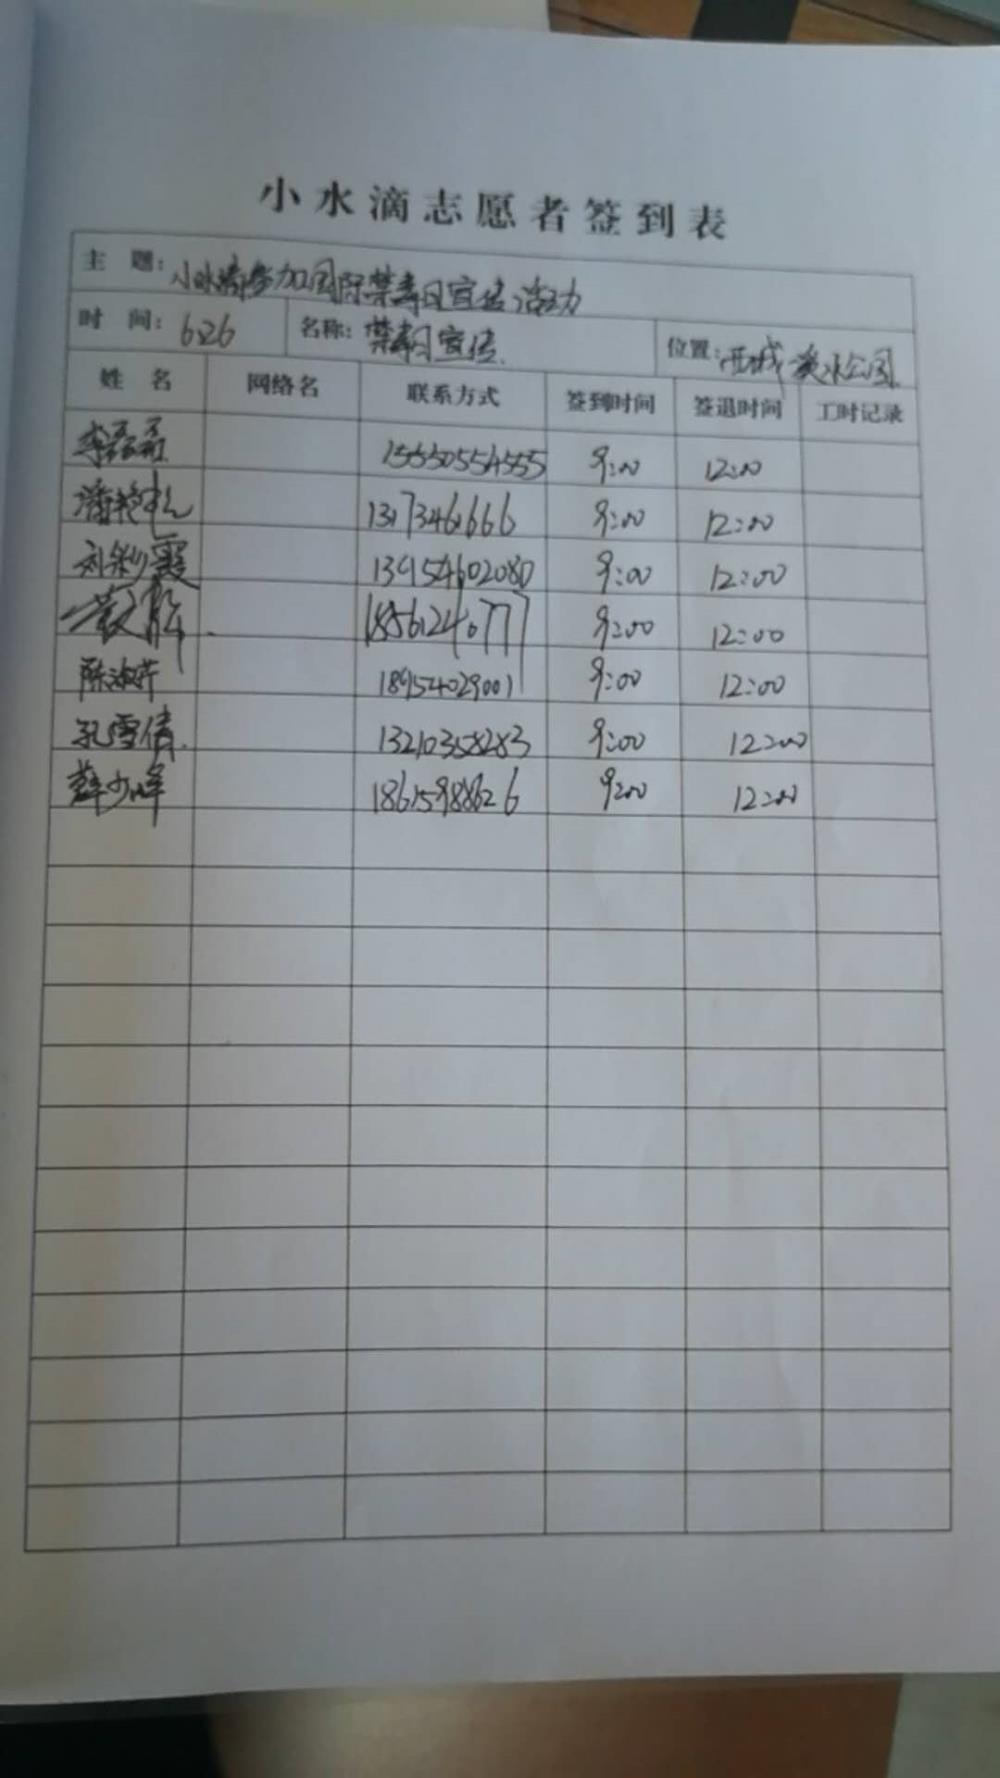 小水滴志愿者签到表
主 题: 小水滴参加国际禁毒日宣传活动
时 间: 626 名称: 禁毒日宣传 位置: 西城 水公园
姓 名 网络名 联系方式 签到时间 签退时间 工时记录
李磊磊 15550554555 9:00 12:00
潘艳 9:00 12:00
刘彩霞 13954602080 9:00 12:00
18561240777 9:00 12:00
陈淑芹 18954029001 9:00 12:00
孔雪倩 13210358283 9:00 12:00
薛少峰 18615988626 9:00 12:00